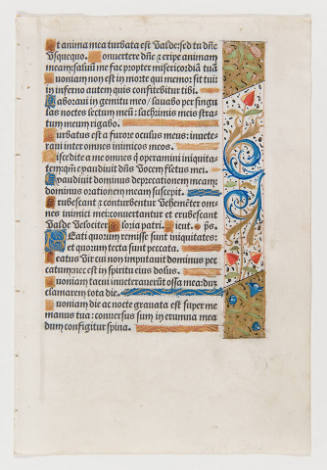 Et anima mea turbata est valde: sed tu dñe
vsquequo. Convertere dñe z eripe animam
meam: saluũ me fac propter misericordiã tuã
Quoniam non est in morte qui memor sit tui:
in inferno autem quis confitebitur tibi.
Laboravi in gemitu meo / lavabo per singu
las noctes lectum meũ: lachrimis meis stra
tum meum rigabo.
Turbatus est a furore oculus meus: invete
ravi inter omnes inimicos meos.
Discedite a me omnes q̃ operamini iniquita
tem: qm̃ exaudivit dñs vocem fletus mei.
Exaudivit dominus deprecationem meam:
dominus orationem meam suscepit.
Erubescant z conturbentur vehemẽter om
nes inimici mei: convertantur et erubescant
valde velociter. Gloria patri. Sicut. ps.
Beati quorum remisse sunt iniquitates:
et quorum tecta sunt peccata.
Beatus vir cui non imputavit dominus pec
catum: nec est in spiritu eius dolus.
Quoniam tacui inveteraverũt ossa mea: dũ
clamarem tota die.
Quoniam die ac nocte gravata est super me
manus tua: conversus sum in erumna mea
dum configitur spina.